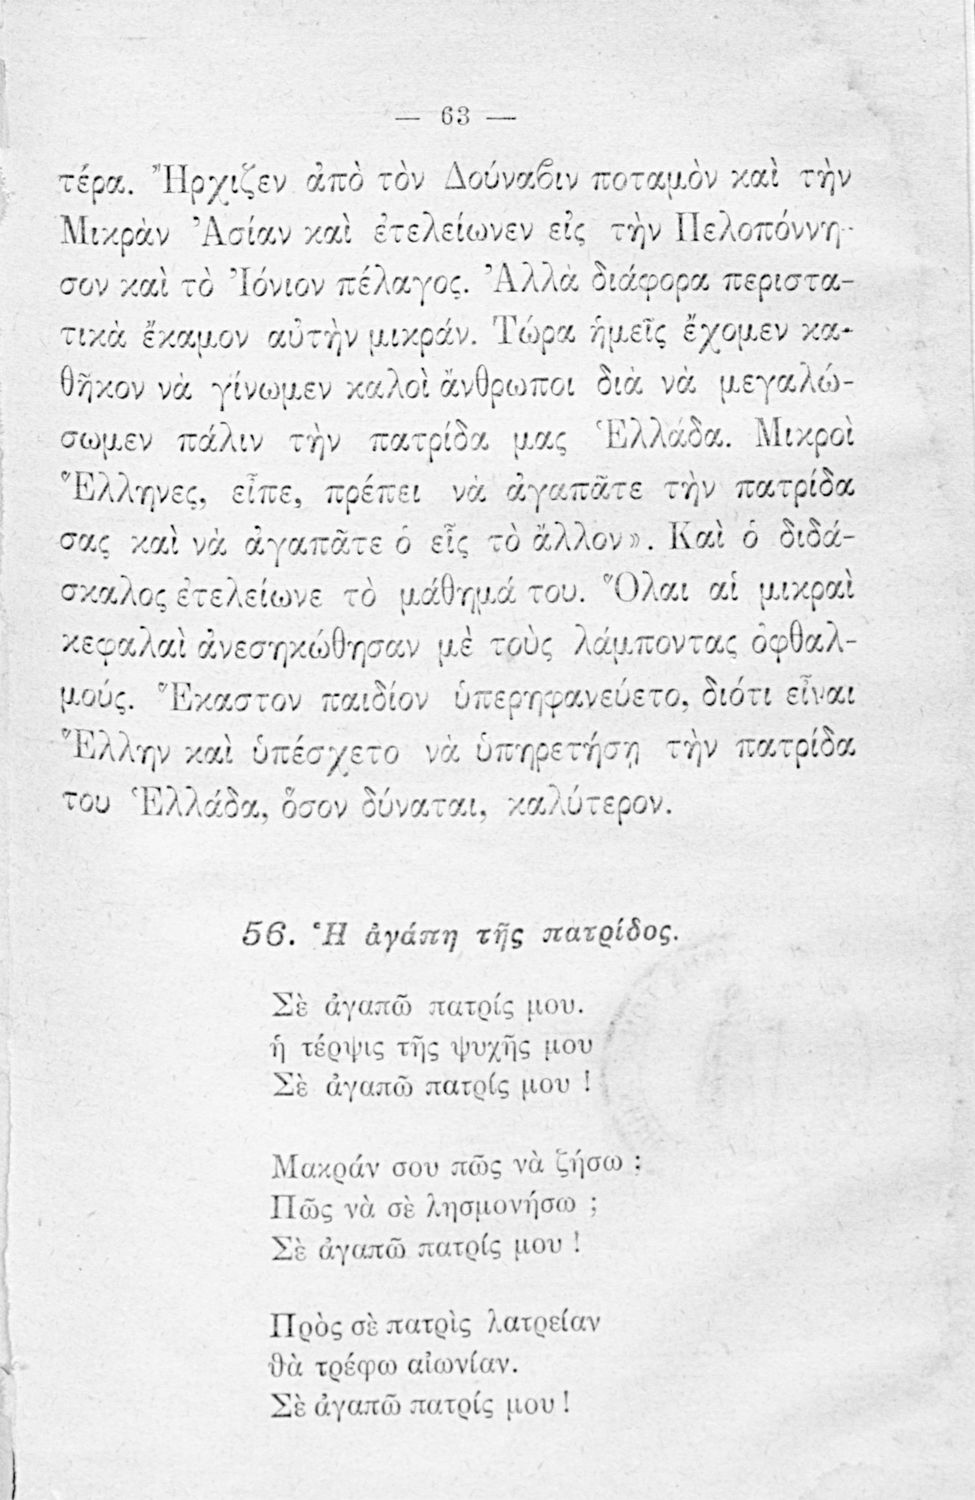 — 63 —
τέρα. Ἤρχιζεν ἀπὸ τὸν Δούναβιν ποταμὸν καὶ τὴν
Μικρὰν Ἀσίαν καὶ ἐτελείωνεν εἰς τὴν Πελοπόννη-
σον καὶ τὸ Ἰόνιον πέλαγος. Ἀλλὰ διάφορα περιστα-
τικὰ ἔκαμον αὐτὴν μικράν. Τώρα ἡμεῖς ἔχομεν κα-
θῆκον νὰ γίνωμεν καλοὶ ἄνθρωποι διὰ νὰ μεγαλώ-
σωμεν πάλιν τὴν πατρίδα μας Ἑλλάδα. Μικροὶ
Ἕλληνες, εἶπε, πρέπει νὰ ἀγαπᾶτε τὴν πατρίδα
σας καὶ νὰ ἀγαπᾶτε ὁ εἷς τὸ ἄλλον». Καὶ ὁ διδά-
σκαλος ἐτελείωνε τὸ μάθημά του. Ὅλαι αἱ μικραὶ
κεφαλαὶ ἀνεσηκώθησαν μὲ τοὺς λάμποντας ὀφθαλ-
μούς. Ἕκαστον παιδίον ὑπερηφανεύετο, διότι εἶναι
Ἕλλην καὶ ὑπέσχετο νὰ ὑπηρετήσῃ τὴν πατρίδα
του Ἑλλάδα, ὅσον δύναται, καλύτερον.
56. Ἡ ἀγάπη τῆς πατρίδος.
Σὲ ἀγαπῶ πατρίς μου.
ἡ τέρψις τῆς ψυχῆς μου
Σὲ ἀγαπῶ πατρίς μου !
Μακράν σου πῶς νὰ ζήσω ;
Πῶς νὰ σὲ λησμονήσω ;
Σὲ ἀγαπῶ πατρίς μου !
Πρὸς σὲ πατρὶς λατρείαν
θὰ τρέφω αἰωνίαν.
Σὲ ἀγαπῶ πατρίς μου !